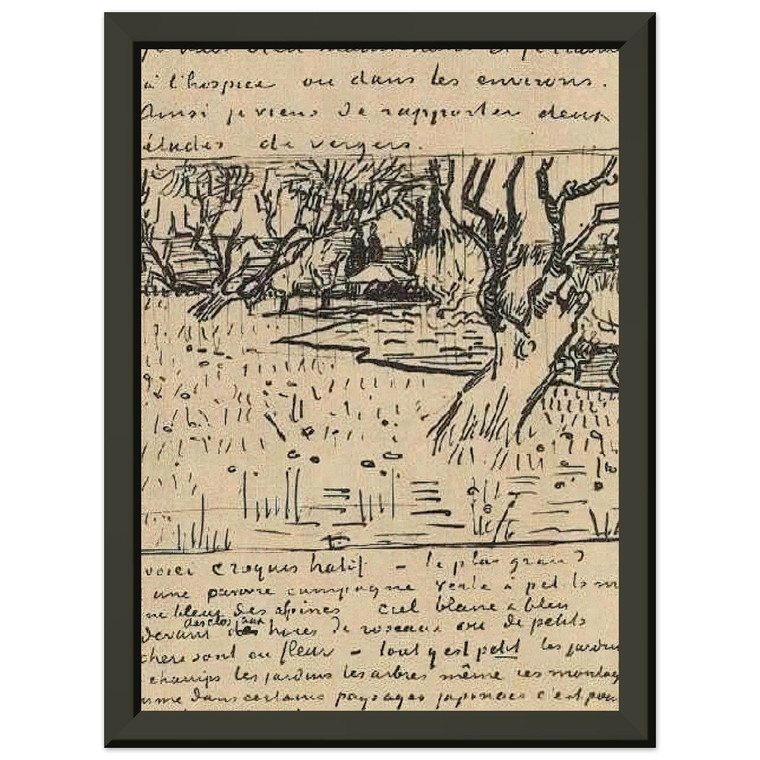 à l'hospice ou dans les environs.
Ainsi je viens de rapporter deux
études de vergers.
voici croquis hatif – le plus grand
une pauvre campagne verte à petits m
ne bleue des alpines ciel blanc & bleu
des clos aux
devant haies de roseaux ou de petits
chers sont en fleur – tout y est petit les jardins
champs les jardins les arbres même ces montag
mme dans certains paysages japonais c'est pour